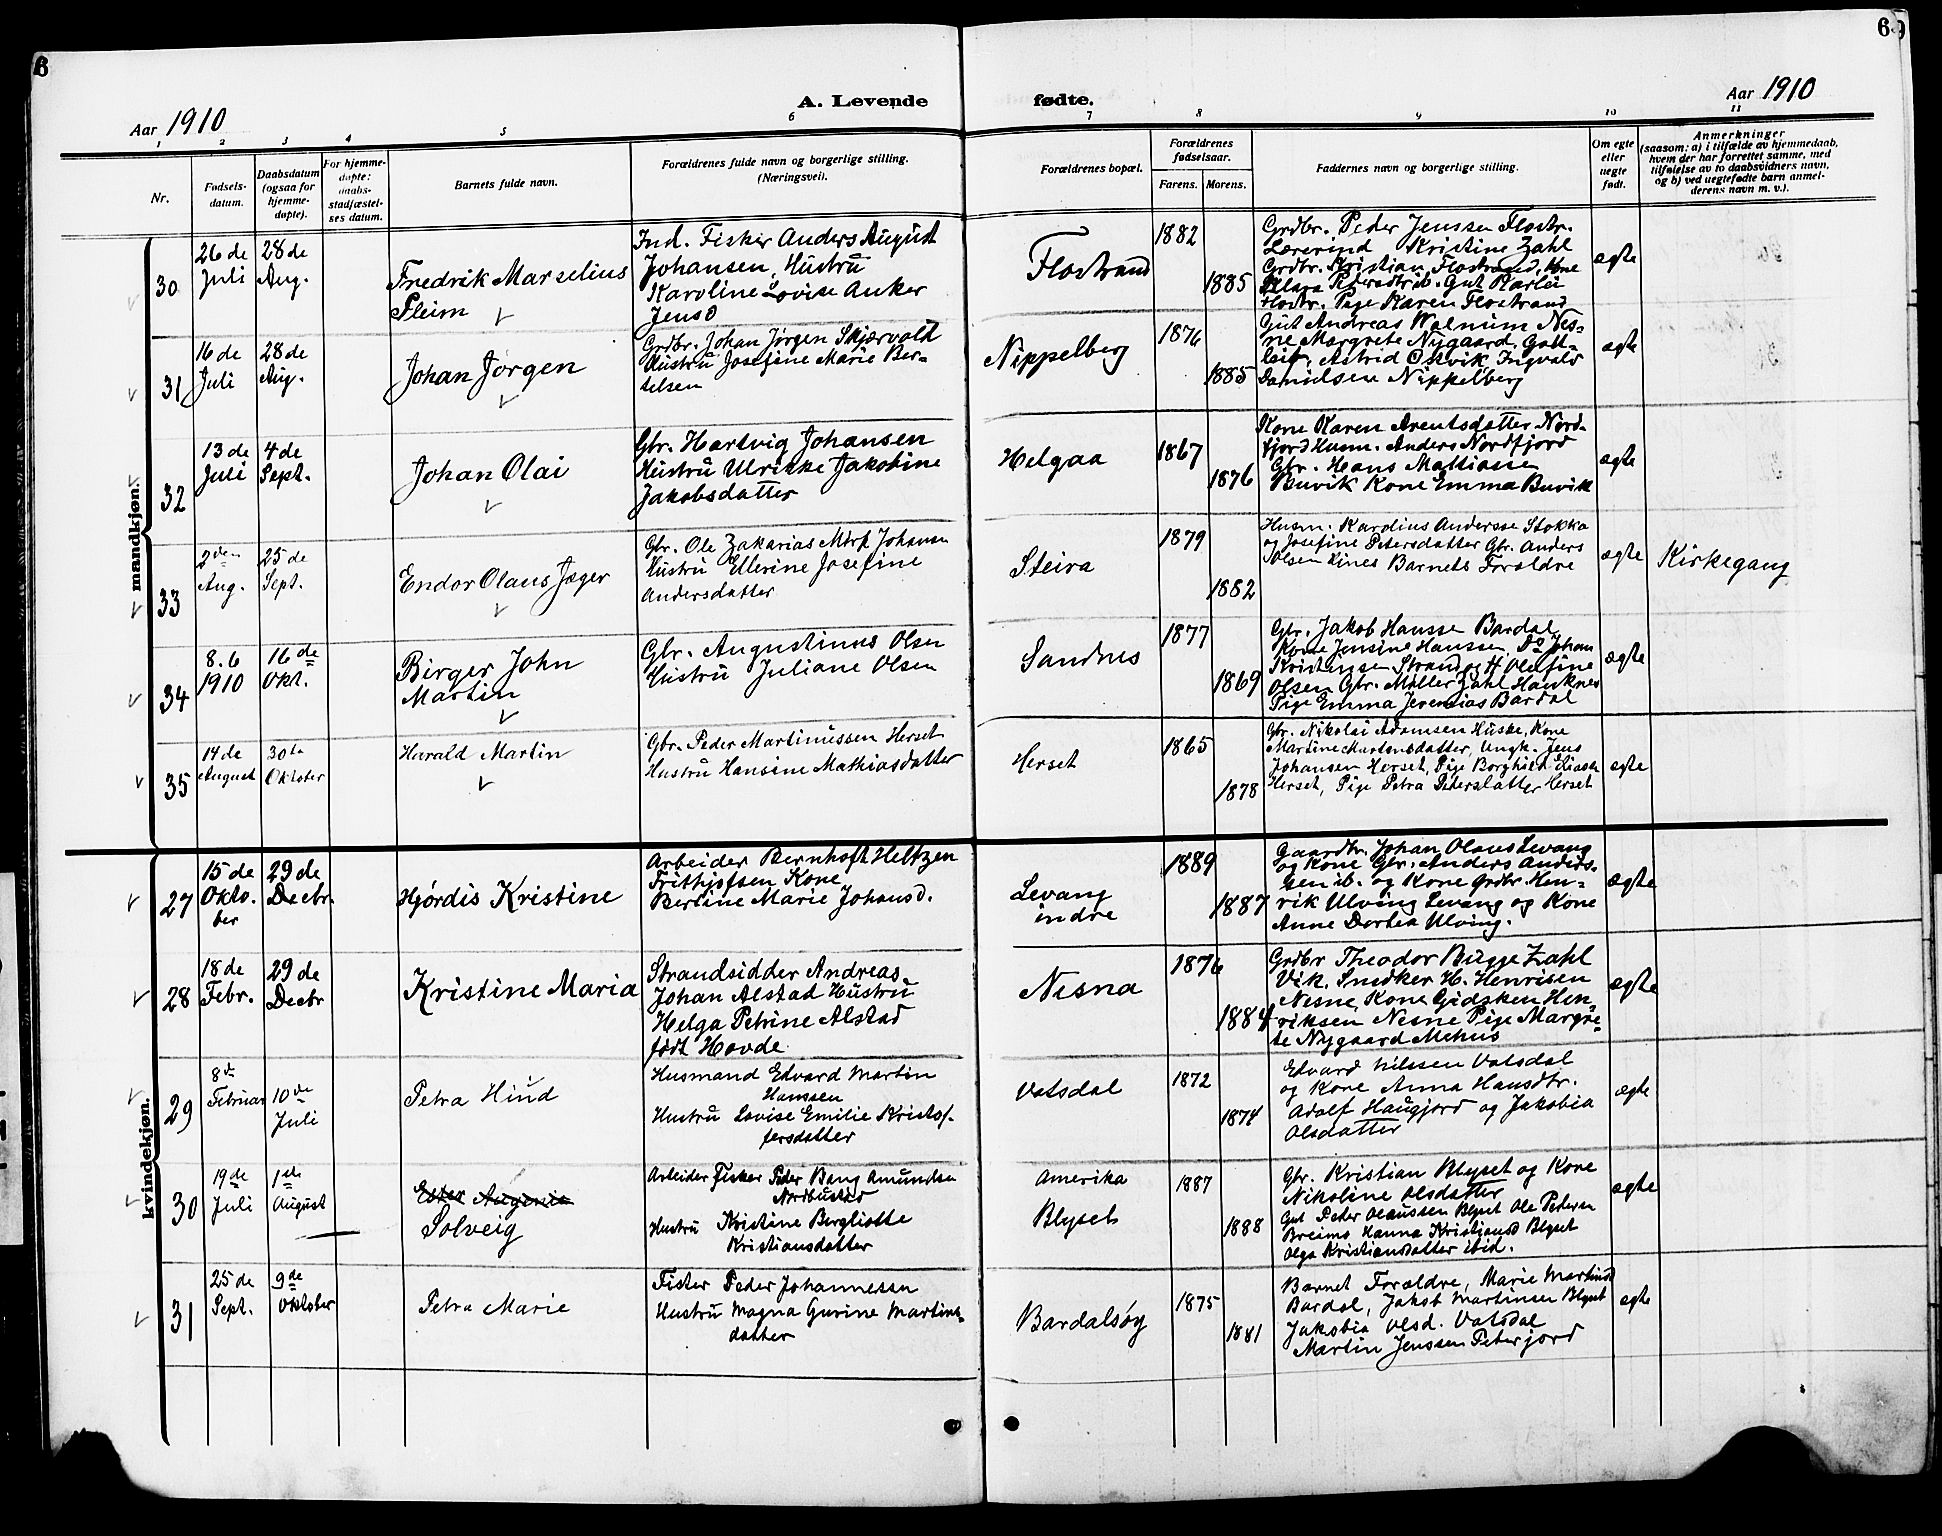 6
69
A. Levende fødte.
Aar 1910
Aar 1910
1 2 3 4 5 6 7 8 9 10 11
Nr.
Fødsels-
datum.
Daabsdatum
(ogsaa for
hjemme-
døpte).
For hjemme-
døpte:
daabs-
stadfæstel-
ses datum.
Barnets fulde navn.
Forældrenes fulde navn og borgerlige stilling.
(Næringsvei).
Forældrenes bopæl.
Forældrenes
fødselsaar.
Farens. Morens.
Faddernes navn og borgerlige stilling.
Om egte
eller
uegte
født.
Anmerkninger
(saasom: a) i tilfælde av hjemmedaab,
hvem der har forrettet samme, med
tilføielse av to daabsvidners navn,
og b) ved uegtefødte barn anmel-
derens navn m. v.).
mandkjøn.
30
26 de
Juli
28 de
Aug.
Fredrik Marselius
Pleim
Ind. Fisker Anders August
Johansen, Hustru
Karoline Lovise Anker
Jensd
Flostrand
1882
1885
Grdbr. Peder Jenssen Flostr.
Lærerind Kristine Zahl
Grdbr. Kristian Flostrand, Kone
Flostr. Pige Karen Flostrand
ægte
31
16 de
Juli
28 de
Aug.
Johan Jørgen
Grdbr. Johan Jørgen Skjærvold
Hustru Josefine Marie Ber-
telsen
Nippelberg
1876
1885
Gut Andreas Walnum Nes-
ne Margrete Nygaard, Gott-
leif, Astrid Østvik Ingvald
Danielsen Nippelberg
ægte
32
13 de
Juli
4 de
Sept.
Johan Olai
Gbr. Hartvig Johansen
Hustru Ulrikke Jakobine
Jakobsdatter
Helgaa
1867
1876
Kone Karen Arentsdatter Nord-
fjord Husm. Anders Nordfjord
Gbr. Hans Mattiasse
Buvik Kone Emma Buvik
ægte
33
2 den
Aug.
25 de
Sept.
Endor Olaus Jæger
Gbr. Ole Zakarias Mört Johansen
Hustru Ellerine Josefine
Andersdatter
Steira
1879
1882
Husm. Karolius Andersse Stokka
og Josefine Petersdatter Gbr. Anders
Olsen Vines Barnets Forældre
ægte
Kirkegang
34
8.6
1910
16 de
Okt.
Birger John
Martin
Gbr. Augustinus Olsen
Hustru Juliane Olsen
Sandnes
1877
1869
Gbr. Jakob Hanssen Bardal
Kone Jensine Hanssen, Do Johan
Kristensen Strand og H Olefine
Olsen Gbr. Møller Zahl Hauknes
Pige Emma Jeremias Bardal
ægte
35
14 de
August
30 te
Oktober
Harald Martin
Gbr. Peder Martinussen Herset
Hustru Hansine Mathiasdatter
Herset
1865
1878
Gbr. Nikolai Adamsen Huske, Kone
Martine Mortensdatter, Ungk. Jens
Johansen Herset, Pige Borghild
Herset, Pige Petra Pedersdatter Herset
ægte
kvindekjøn.
27
15 de
Okto-
ber
29 de
Decbr.
Hjørdis Kristine
Arbeider Bernhoft Heltzen
Frithjofsen Kone
Bertine Marie Johansd.
Levang
indre
1889
1887
Gaardbr. Johan Olaus Levang
og Kone Gbr. Anders Anders-
sen ib. og Kone Grdbr. Hen-
rik Ulving Levang og Kone
Anne Dortea Ulving.
ægte
28
18 de
Febr.
29 de
Decbr
Kristine Maria
Strandsidder Andreas
Johan Alstad Hustru
Helga Petrine Alstad
født Hovde
Nesna
1876
1884
Grdbr Theodor Bugge Zahl
Vik, Snedker H. Henrisen
Nesne, Kone Gidsken Hen-
riksen Nesne Pige Margre-
te Nygaard Mehus
ægte
29
8 de
Februar
10 de
Juli
Petra Hind
Husmand Edvard Martin
Hanssen
Hustru Lovise Emilie Kristof-
fersdatter
Vatsdal
1872
1874
Edvard Nilssen Vatsdal
og Kone Anna Hansdtr.
Adolf Haugjord og Jakobia
Olsdatter
ægte
30
19 de
Juli
1 ste
August
Ester Augenie
Solveig
Arbeider Fisker Peder Bang Amundsen
Nordbustad
Hustru Kristine Bergliotte
Kristiansdatter
Amerika
Blyset
1887
1888
Gbr. Kristian Blyset og Kone
Nikoline Olsdatter
Gut Peder Olaussen Blyset Ole Petersen
Breimo Hanna Kristiansd Blyset
Olga Kristiansdatter ibid.
ægte
31
25 de
Sept.
9 de
Oktober
Petra Marie
Fisker Peder Johannessen
Hustru Magna Gurine Martins-
datter
Bardalsøy
1875
1881
Barnet Forældre, Marie Martinsd
Bardal, Jakob Martinsen Blyset
Jakobia Olsd. Vatsdal
Martin Jenssen Peterjord
ægte